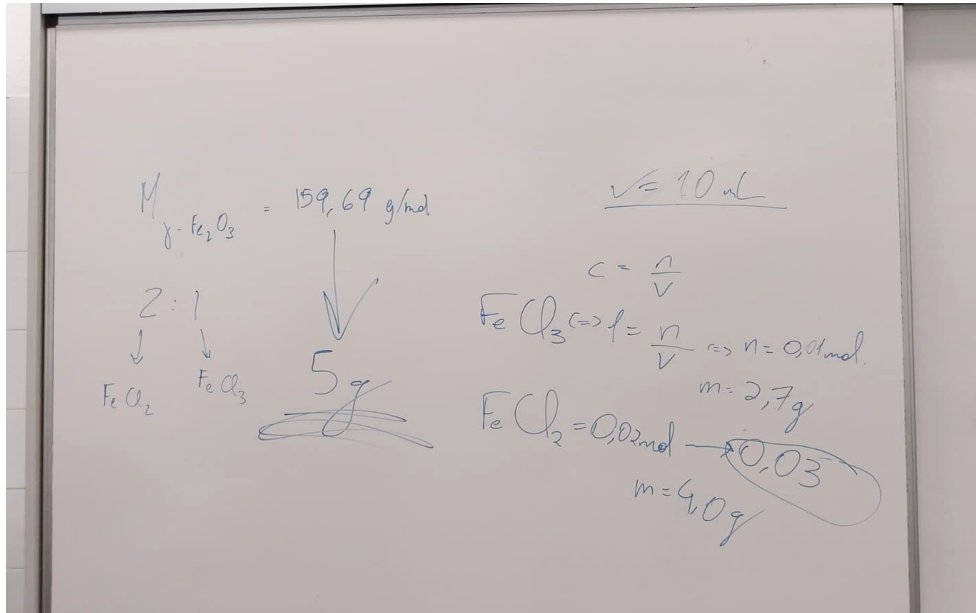 M γ-Fe₂O₃ = 159,69 g/mol
2 : 1
FeCl₂ FeCl₃
5g
V = 10 mL
c = n/V
FeCl₃ <=> 1 = n/V <=> n = 0,01mol.
m = 2,7g
FeCl₂ = 0,02mol → 0,03
m = 4,0g